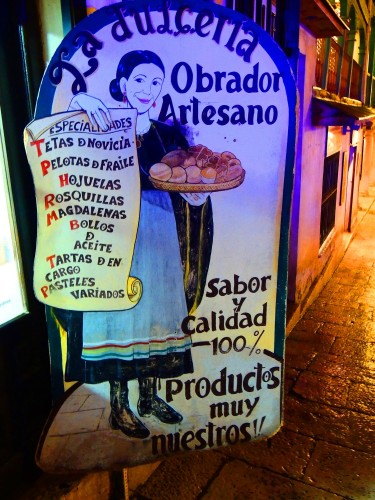 La dulcería
Obrador
Artesano
ESPECIALIDADES
TETAS D NOVICIA
PELOTAS D FRAILE
HOJUELAS
ROSQUILLAS
MAGDALENAS
BOLLOS
D
ACEITE
TARTAS D EN
CARGO
PASTELES VARIADOS
Sabor
y
Calidad
100%
Productos
muy
nuestros!!